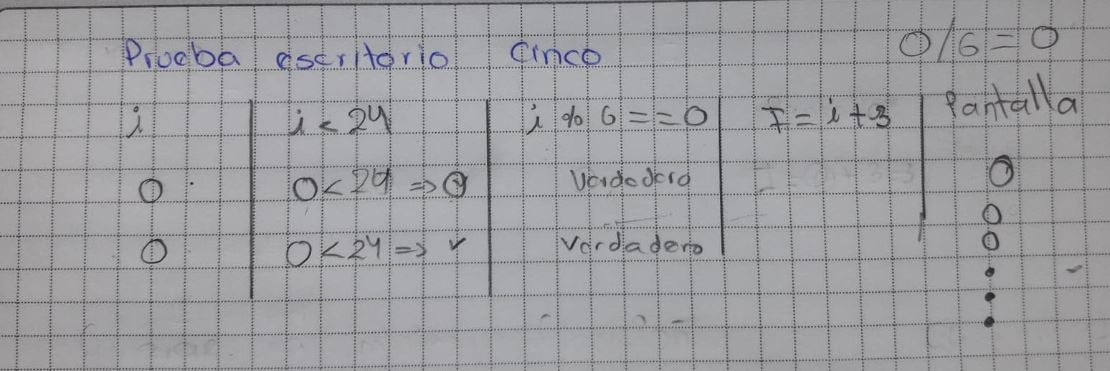 Prueba escritorio Cinco
0/6 = 0
i | i < 24 | i % 6 == 0 | I = i + 3 | Pantalla
0 | 0 < 24 => | Verdadero | | 0
0
0 | 0 < 24 => ✓ | Verdadero | | 0
•
•
•